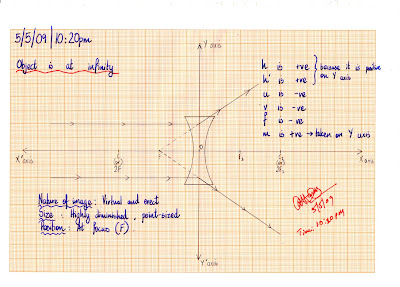 5/5/09 | 10:20pm
Object is at infinity
Y axis
h is +ve
h' is +ve
because it is positive
on Y axis
u is -ve
v is -ve
f is -ve
m is +ve → taken on Y axis
X' axis
2F
O
X axis
Y' axis
Nature of image: Virtual and erect
Size: Highly diminished, point-sized
Position: At focus (F).
5/5/09
Time: 10:30 pm